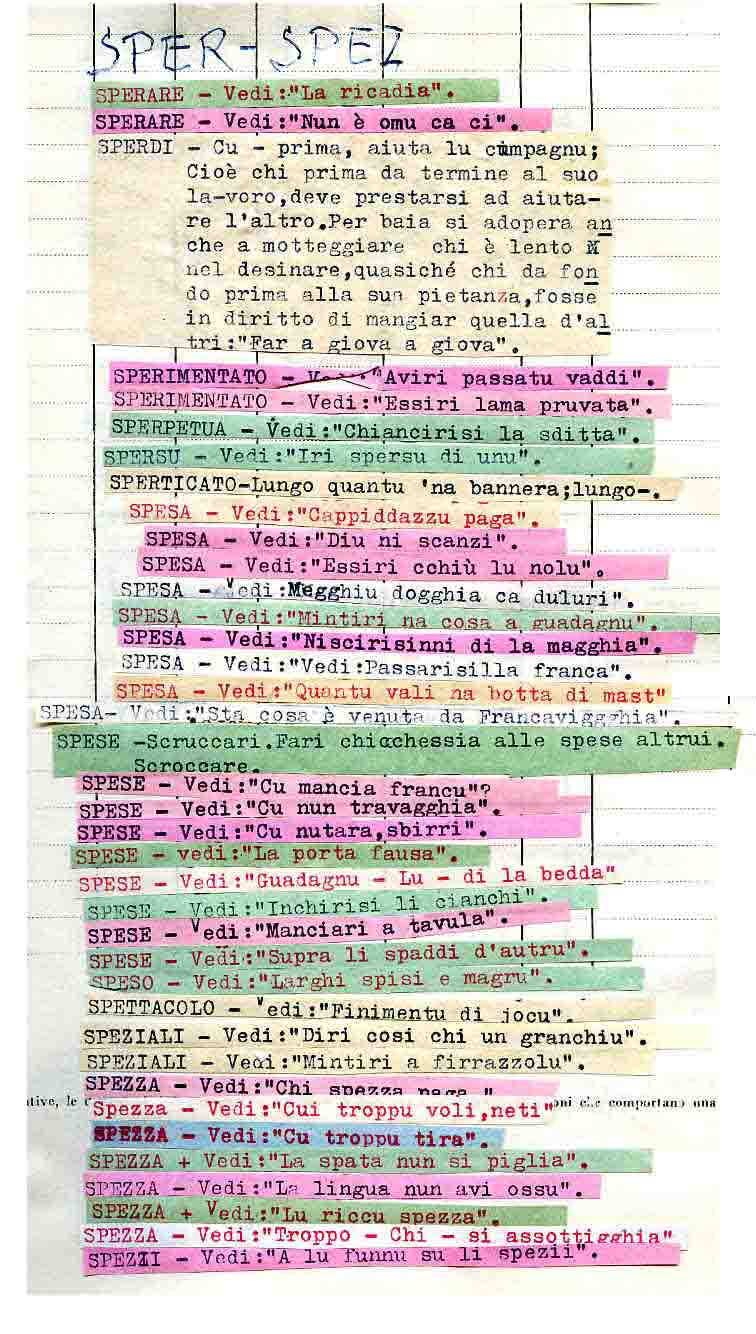 SPER-SPEZ
SPERARE - Vedi:"La ricadia".
SPERARE - Vedi:"Nun è omu ca ci".
SPERDI - Cu - prima, aiuta lu cumpagnu;
Cioè chi prima da termine al suo
la-voro,deve prestarsi ad aiuta-
re l'altro.Per baia si adopera an
che a motteggiare chi è lento
nel desinare,quasiché chi da fon
do prima alla sua pietanza,fosse
in diritto di mangiar quella d'al
tri:"Far a giova a giova".
SPERIMENTATO - Vedi:"Aviri passatu vaddi".
SPERIMENTATO - Vedi:"Essiri lama pruvata".
SPERPETUA - Vedi:"Chiancirisi la sditta".
SPERSU - Vedi:"Iri spersu di unu".
SPERTICATO-Lungo quantu 'na bannera;lungo-.
SPESA - Vedi:"Cappiddazzu paga".
SPESA - Vedi:"Diu ni scanzi".
SPESA - Vedi:"Essiri cchiù lu nolu".
SPESA - Vedi:Megghiu dogghia ca duluri".
SPESA - Vedi:"Mintiri na cosa a guadagnu".
SPESA - Vedi:"Niscirisinni di la magghia".
SPESA - Vedi:"Vedi:Passarisilla franca".
SPESA - Vedi:"Quantu vali na botta di mast"
SPESA- Vedi:"Sta cosa è venuta da Francaviggghia".
SPESE -Scruccari.Fari chicchessia alle spese altrui.
Scroccare.
SPESE - Vedi:"Cu mancia francu"?
SPESE - Vedi:"Cu nun travagghia".
SPESE - Vedi:"Cu nutara,sbirri".
SPESE - vedi:"La porta fausa".
SPESE - Vedi:"Guadagnu - Lu - di la bedda"
SPESE - Vedi:"Inchirisi li cianchi".
SPESE - Vedi:"Manciari a tavula".
SPESE - Vedi:"Supra li spaddi d'autru".
SPESO - Vedi:"Larghi spisi e magru".
SPETTACOLO - Vedi:"Finimentu di jocu".
SPEZIALI - Vedi:"Diri cosi chi un granchiu".
SPEZIALI - Vedi:"Mintiri a firrazzolu".
SPEZZA - Vedi:"Chi spezza paga "
ative, le
Spezza - Vedi:"Cui troppu voli,neti"
oni che comportano una
SPEZZA - Vedi:"Cu troppu tira".
SPEZZA + Vedi:"La spata nun si piglia".
SPEZZA - Vedi:"La lingua nun avi ossu".
SPEZZA + Vedi:"Lu riccu spezza".
SPEZZA - Vedi:"Troppo - Chi - si assottigghia"
SPEZII - Vedi:"A lu funnu su li spezii".